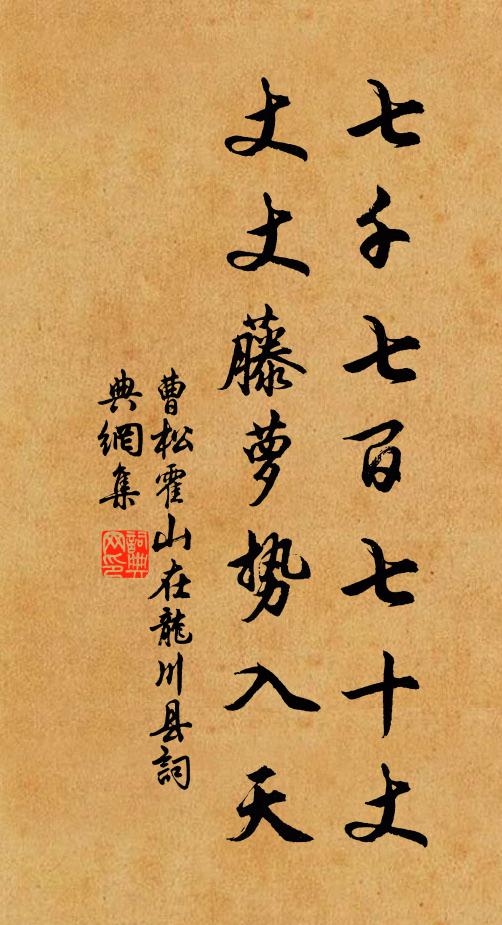 七千七百七十丈
丈丈藤萝势入天
曹松霍山在龍川县詞
典網集
詞典
网印